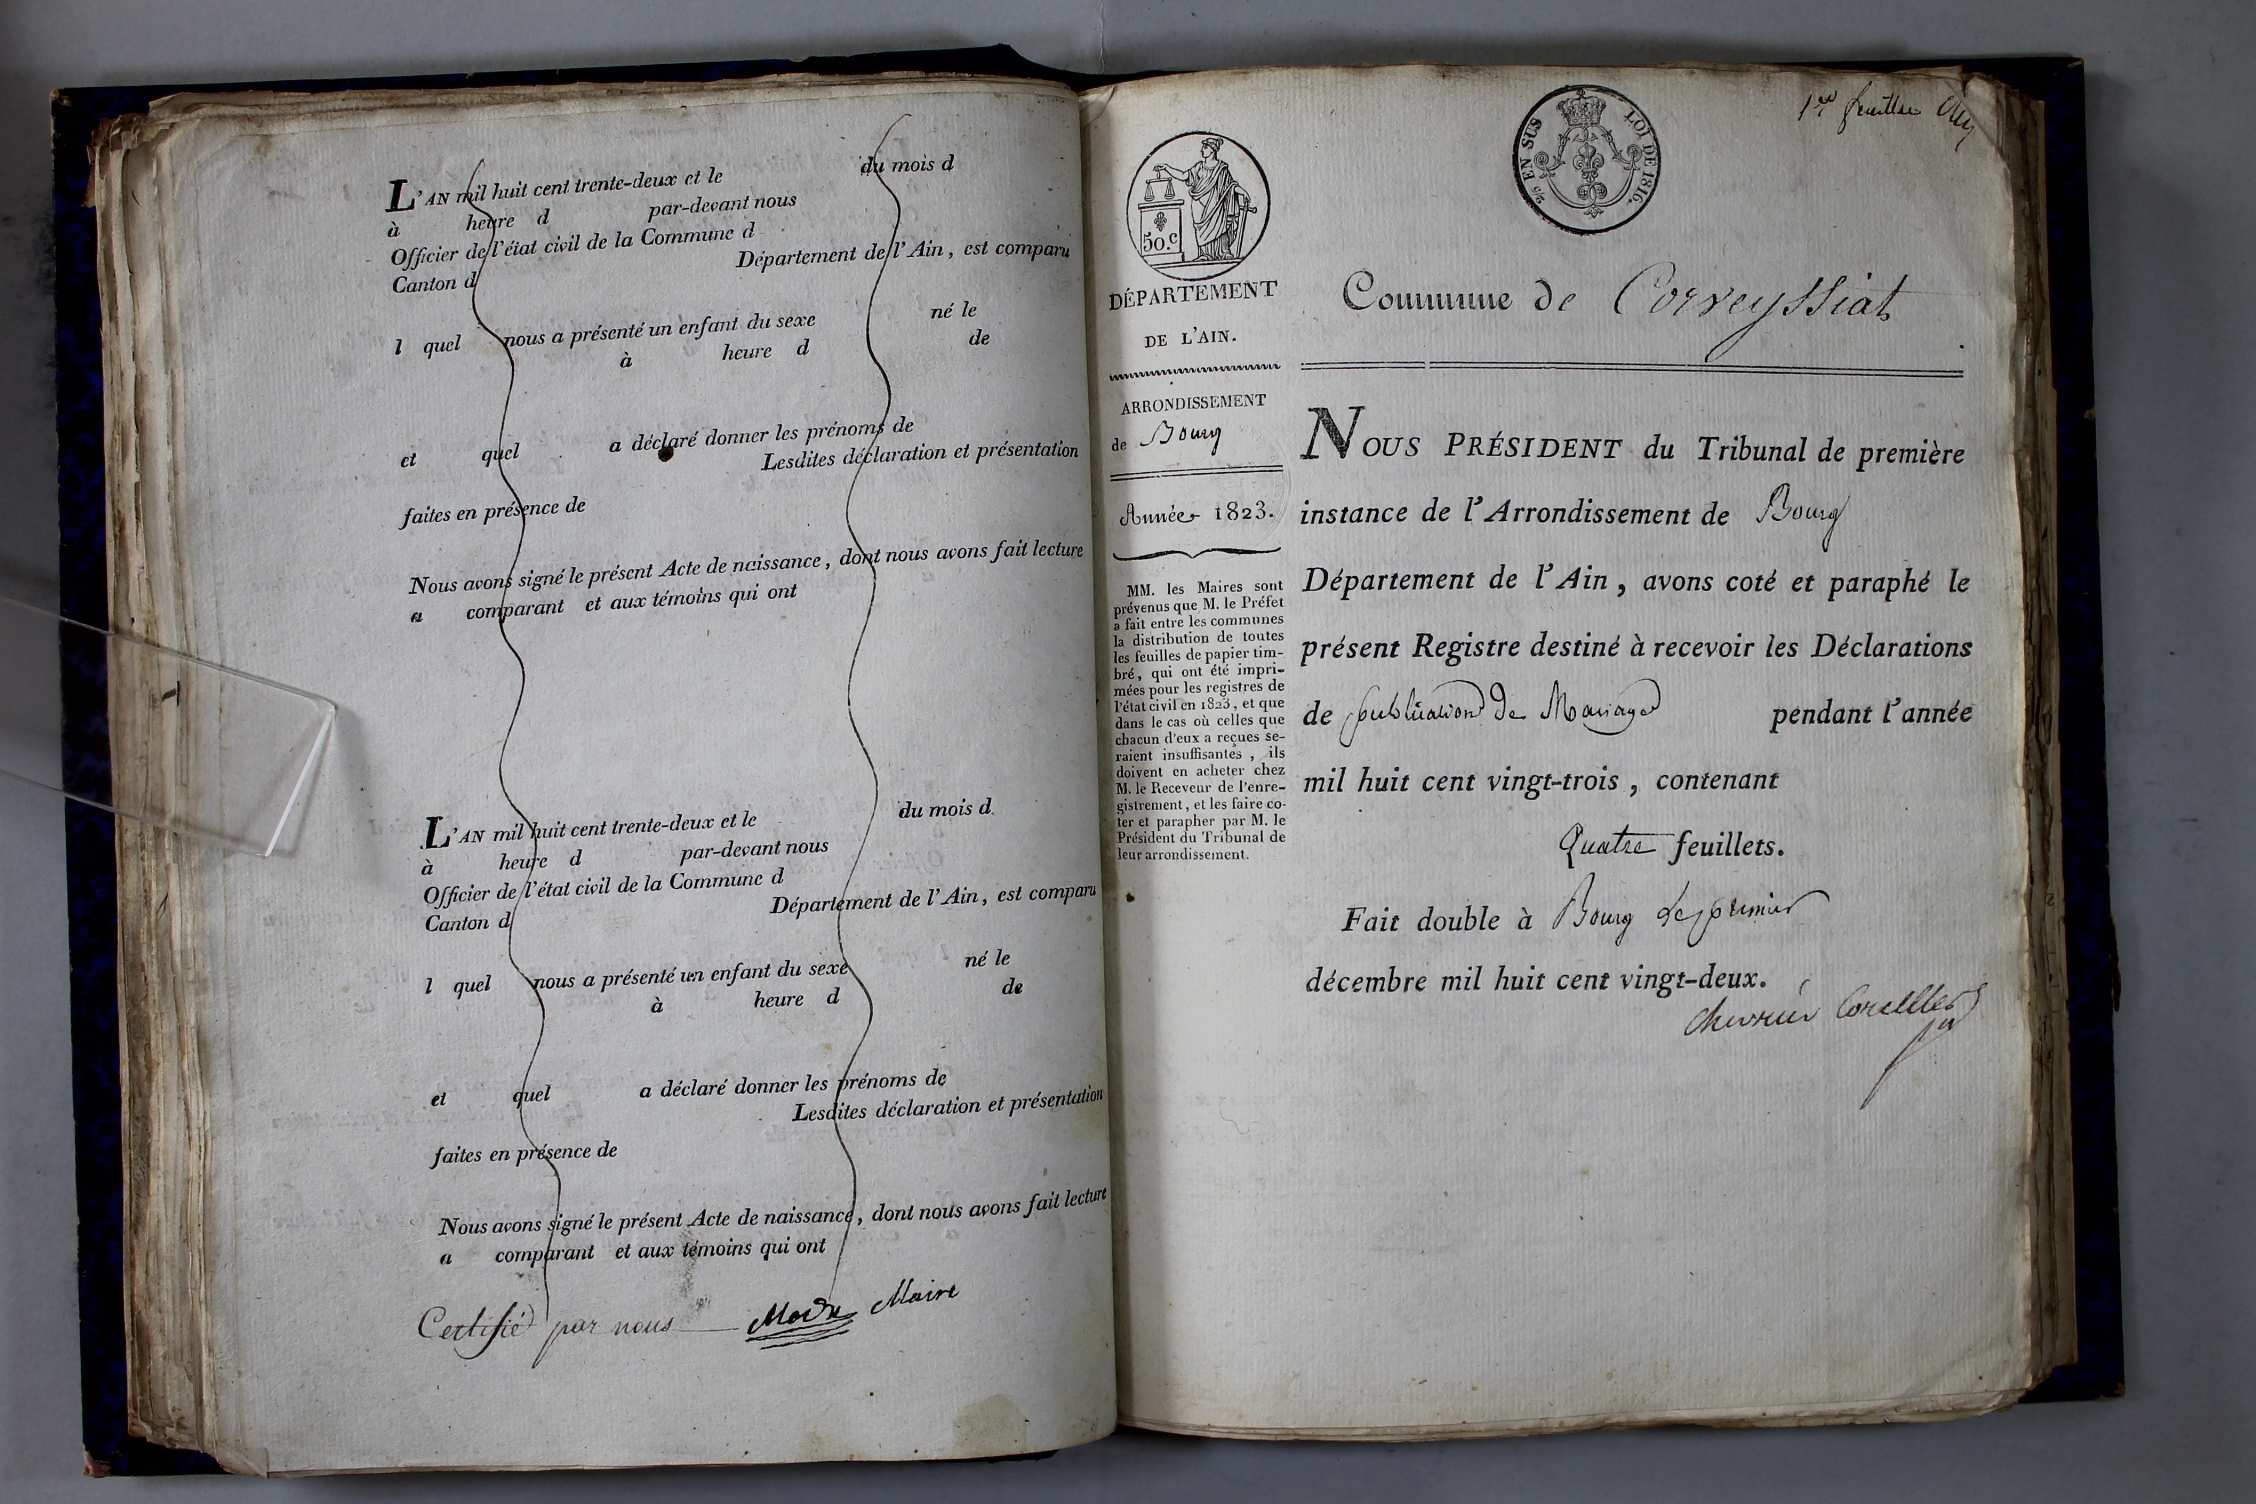 L'AN mil huit cent trente-deux et le du mois d
à heure d par-devant nous
Officier de l'état civil de la Commune d
Canton d Département de l'Ain, est comparu
l quel nous a présenté un enfant du sexe né le
à heure d de
et quel a déclaré donner les prénoms de
Lesdites déclaration et présentation
faites en présence de
Nous avons signé le présent Acte de naissance, dont nous avons fait lecture
a comparant et aux témoins qui ont
L'AN mil huit cent trente-deux et le du mois d
à heure d par-devant nous
Officier de l'état civil de la Commune d
Canton d Département de l'Ain, est comparu
l quel nous a présenté un enfant du sexe né le
à heure d de
et quel a déclaré donner les prénoms de
Lesdites déclaration et présentation
faites en présence de
Nous avons signé le présent Acte de naissance, dont nous avons fait lecture
a comparant et aux témoins qui ont
Certifié par nous Maire
50.c
DÉPARTEMENT
DE L'AIN.
ARRONDISSEMENT
de Bourg
Année 1823.
MM. les Maires sont
prévenus que M. le Préfet
a fait entre les communes
la distribution de toutes
les feuilles de papier tim-
bré, qui ont été impri-
mées pour les registres de
l'état civil en 1823, et que
dans le cas où celles que
chacun d'eux a reçues se-
raient insuffisantes, ils
doivent en acheter chez
M. le Receveur de l'enre-
gistrement, et les faire co-
ter et parapher par M. le
Président du Tribunal de
leur arrondissement.
2/5 EN SUS LOI DE 1816.
1er feuillet
Commune de Corveyssiat
NOUS PRÉSIDENT du Tribunal de première
instance de l'Arrondissement de Bourg
Département de l'Ain, avons coté et paraphé le
présent Registre destiné à recevoir les Déclarations
de publication de Mariage pendant l'année
mil huit cent vingt-trois, contenant
Quatre feuillets.
Fait double à Bourg le premier
décembre mil huit cent vingt-deux.